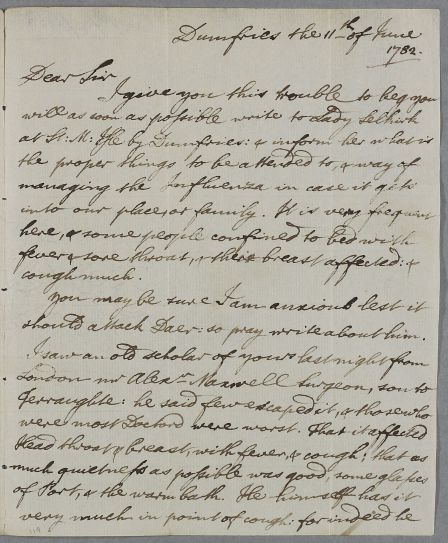 Dumfries the 11th of June
1782.
Dear Sir
I give you this trouble to beg you
will as soon as possible write to Lady Selkirk
at St: M: Isle by Dumfries: & inform her what is
the proper things to be attended to, & way of
managing the Influenza in case it gets
into our place, or family. It is very frequent
here, & some people confined to bed with
fever & sore throat, & their breast affected: &
cough much.
You may be sure I am anxious lest it
should attack Daer: so pray write about him.
I saw an old scholar of yours last night from
London mr Alexr. Maxwell Surgeon, son to
Terraughte: he said few escaped it, & those who
were most Doctord were worst. That it affected
Head throat & breast, with fever, & cough; that as
much quietness as possible was good, some glasses
of Port, & the warm bath. He himself has it
very much in point of cough: for indeed he